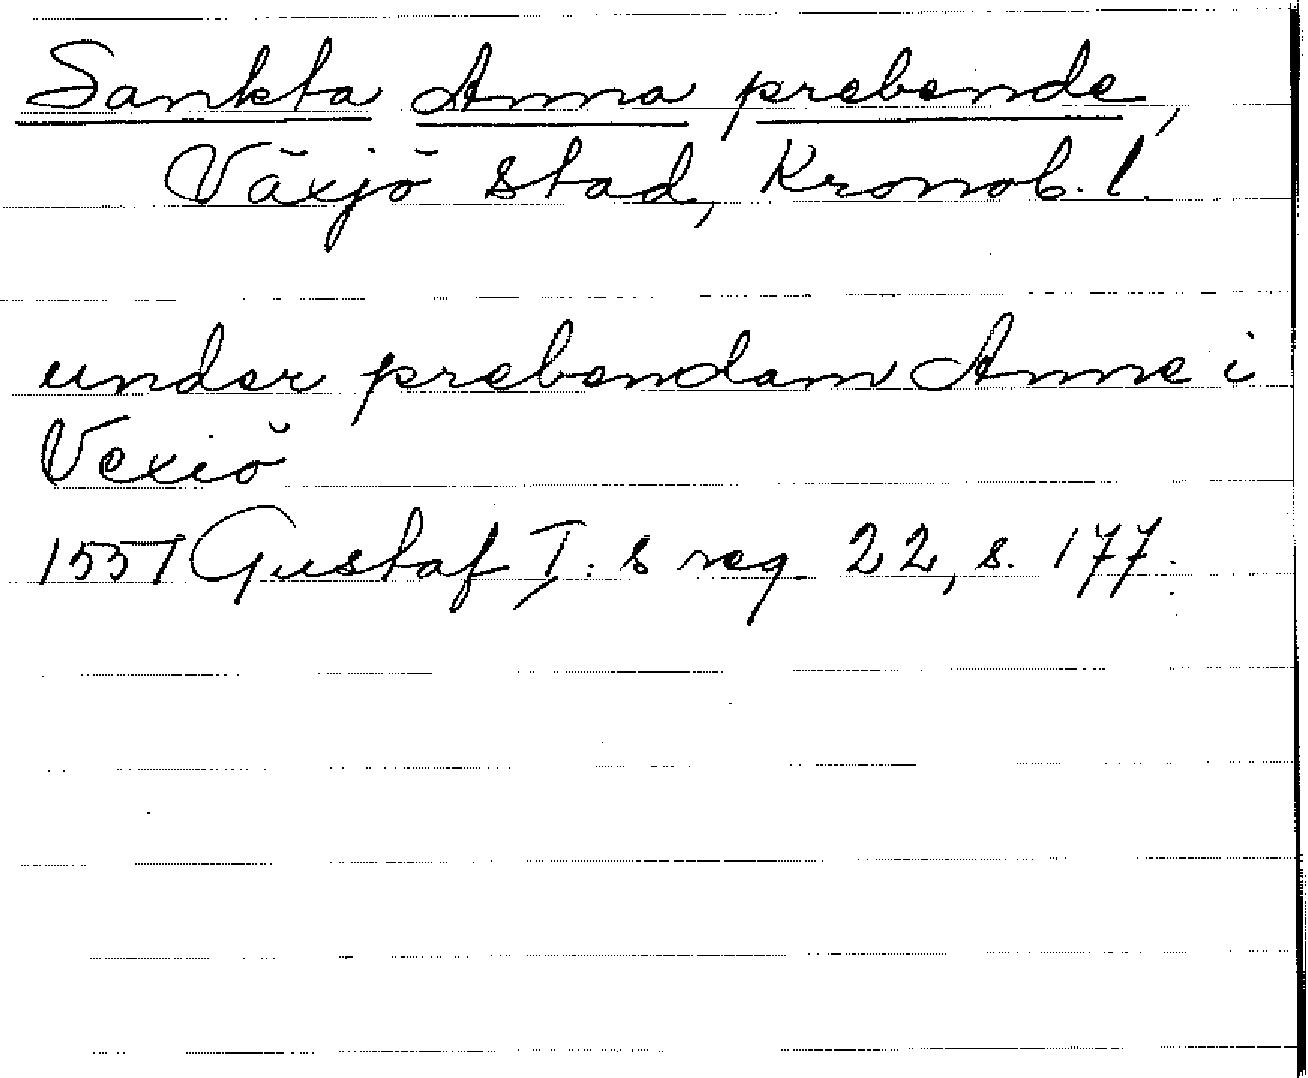 Sankta Anna prebende,
Växjö stad, Kronob. l.
under prebendam Anne i
Vexiö
1551 Gustaf I: s reg 22, s. 177.